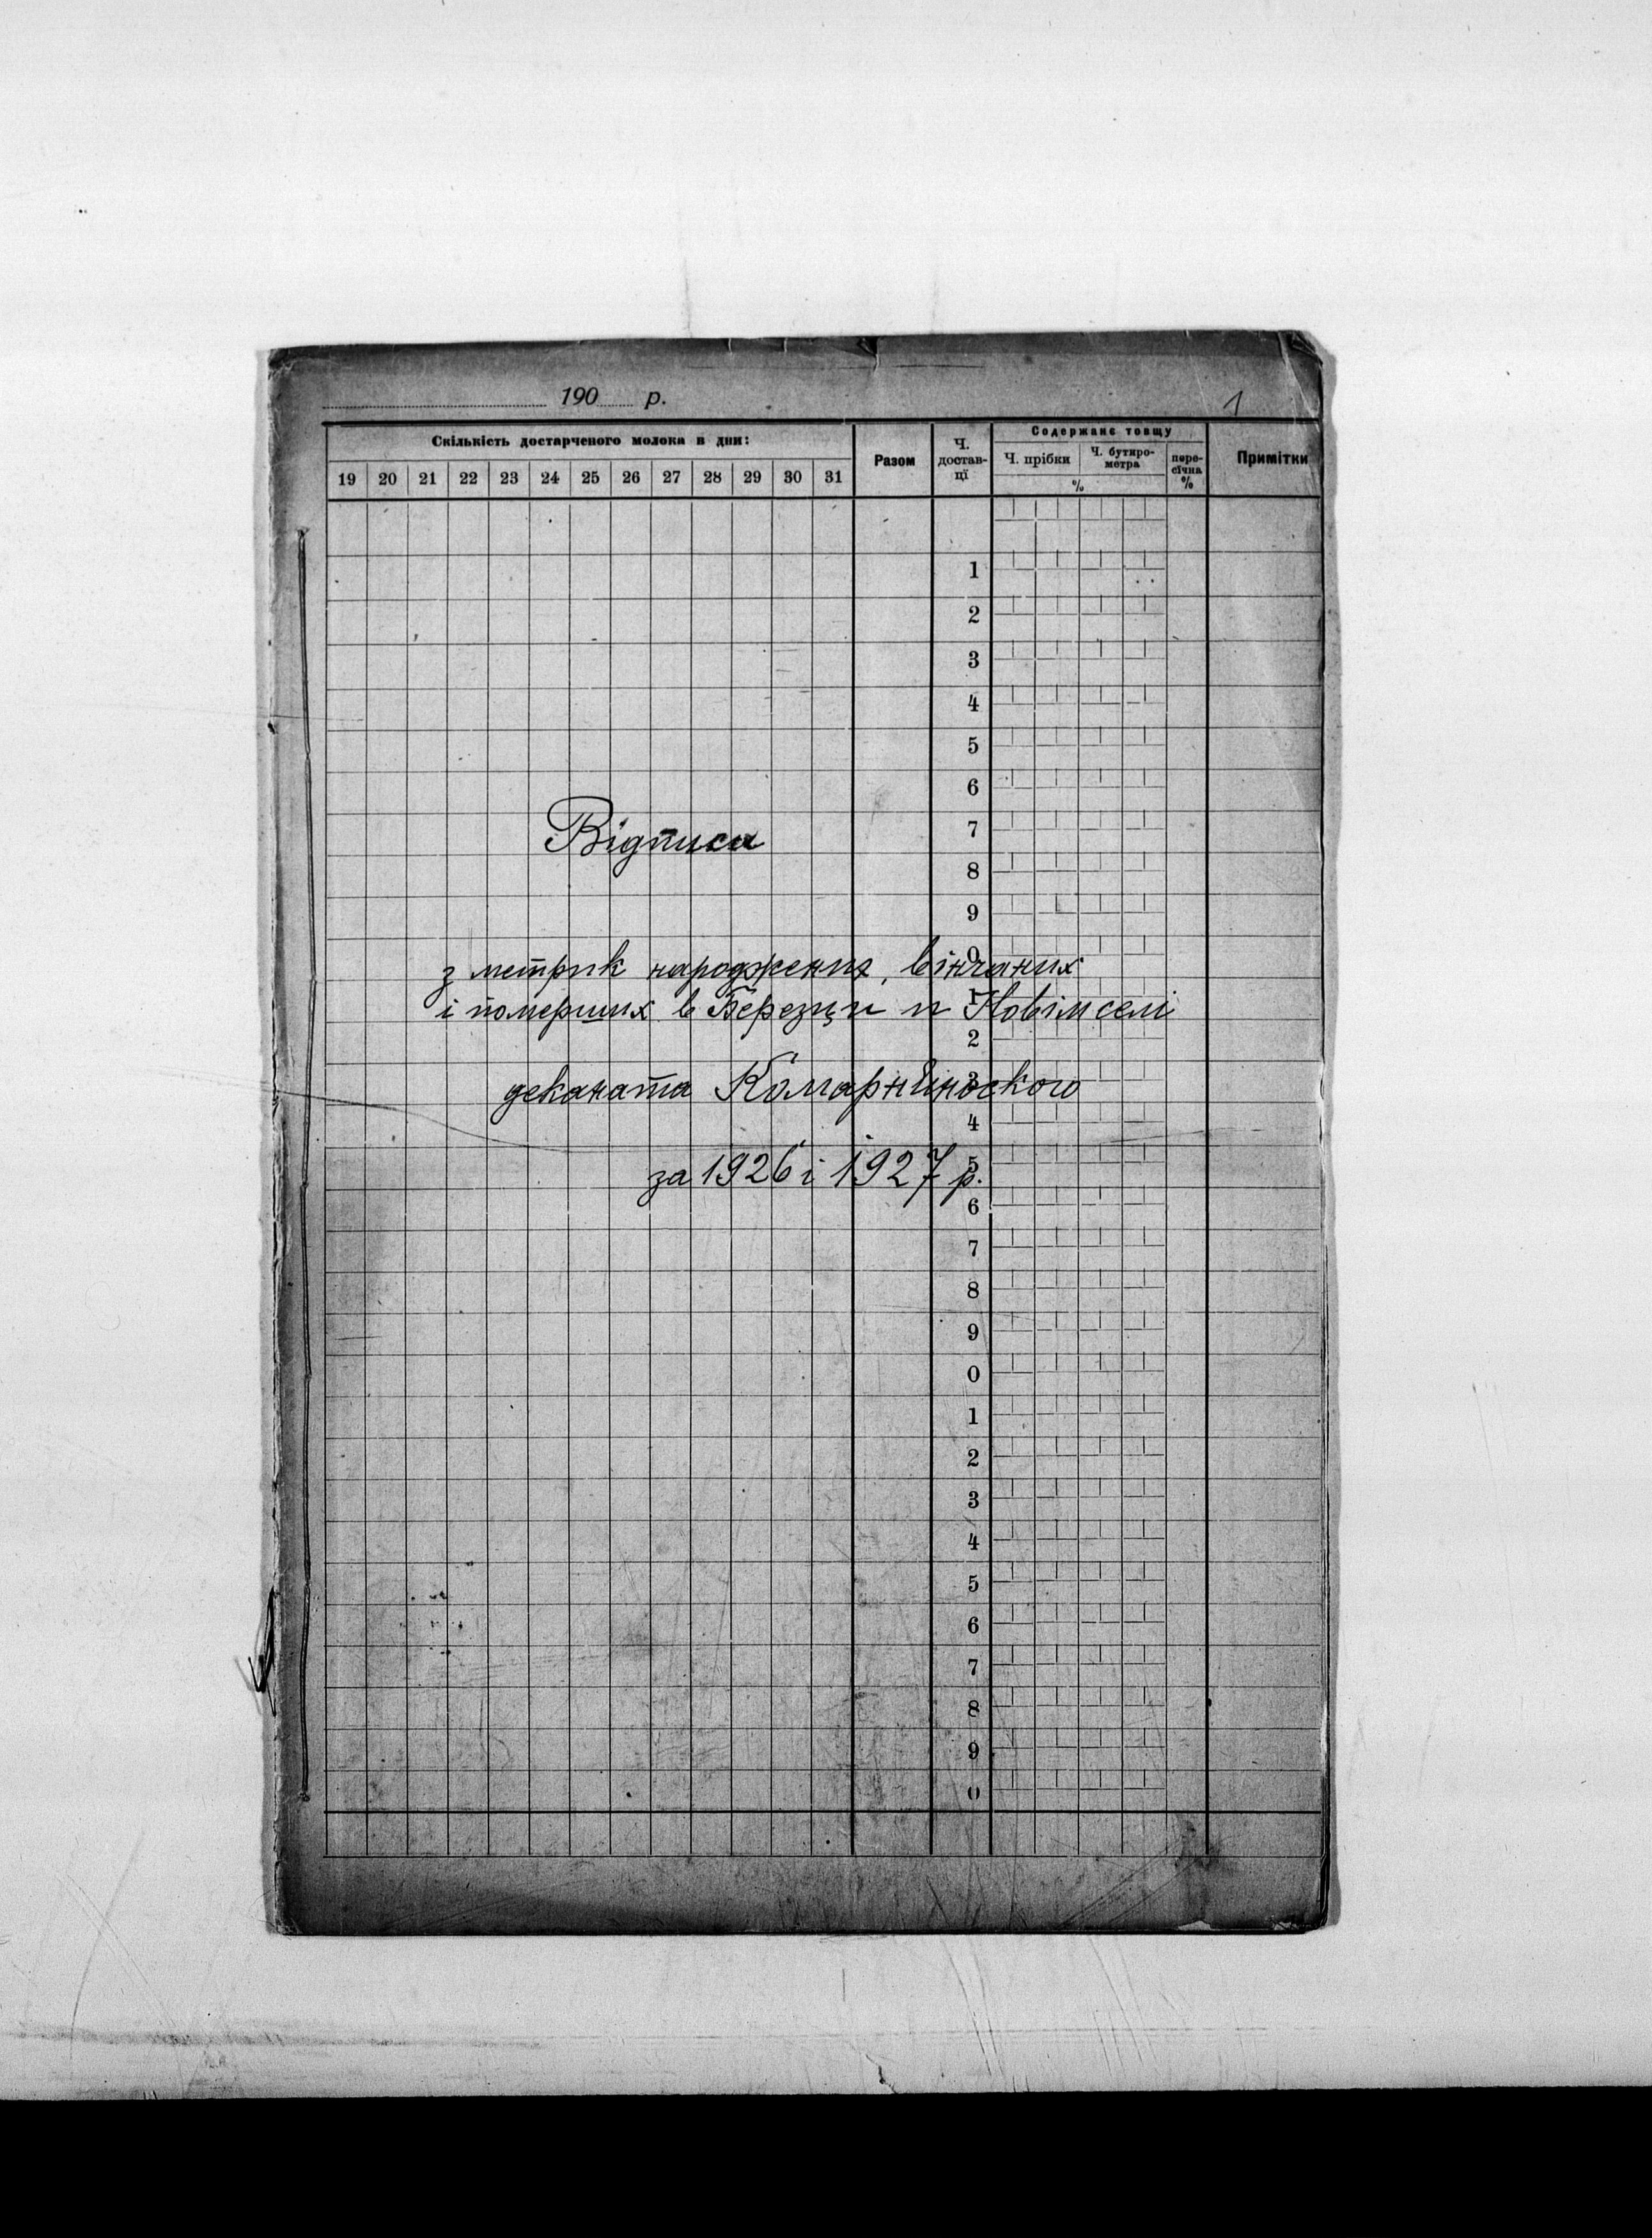 190 р.
1
Скількість достарченого молока в дни:
Разом
Ч. достав-цї
Содержанє товщу
Ч. прібки
Ч. бутиро-метра
%
пере-сїчна %
Примітки
19 20 21 22 23 24 25 26 27 28 29 30 31
1
2
3
4
5
6
7
Відписи
8
9
0
з метрик народжених, вінчаних
1
і померших в Березци и Новімселі
2
3
деканата Комарнянського
4
5
за 1926 і 1927 р.
6
7
8
9
0
1
2
3
4
5
6
7
8
9
0